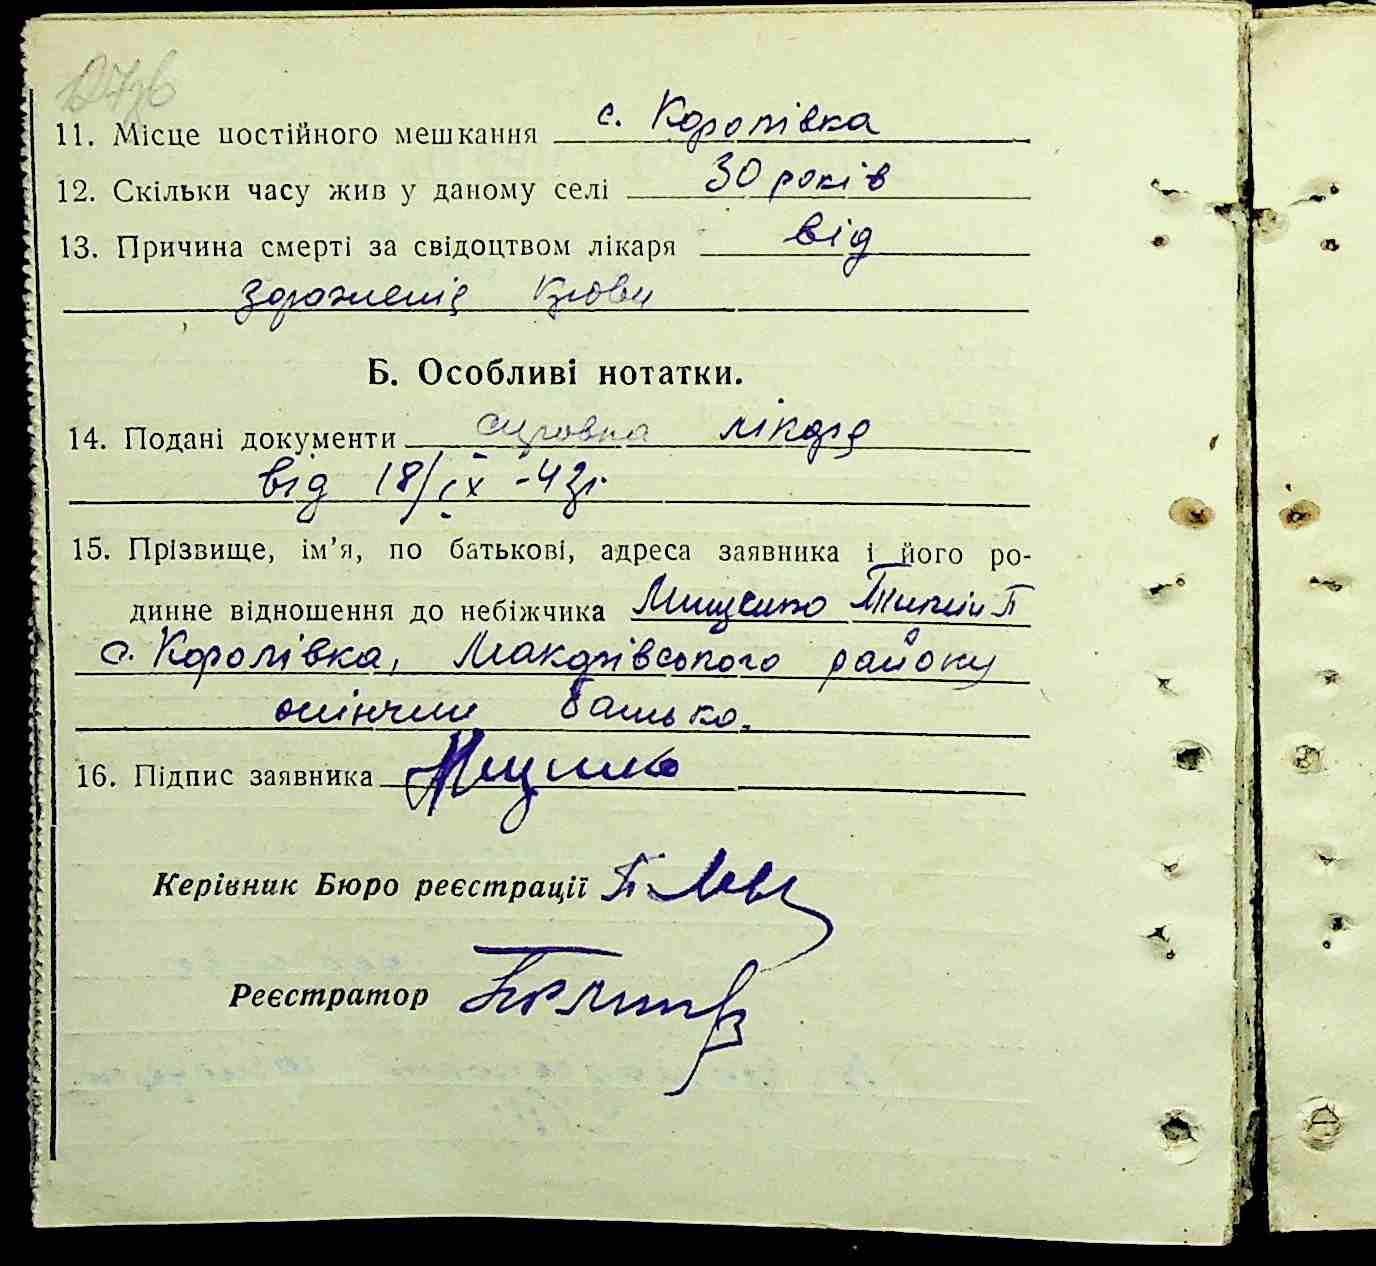 11. Місце постійного мешкання с. Королівка
12. Скільки часу жив у даному селі 30 років
13. Причина смерті за свідоцтвом лікаря від
зараженія крови
Б. Особливі нотатки.
14. Подані документи справка лікаря
від 18/IX -42р.
15. Прізвище, ім’я, по батькові, адреса заявника і його ро-
динне відношення до небіжчика Мищенко П
с. Королівка, Макарівського району
батько.
16. Підпис заявника Мищенко
Керівник Бюро реєстрації
Реєстратор